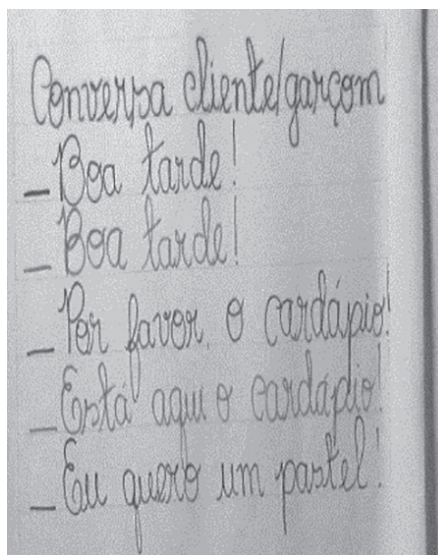 Conversa cliente/garçom
_ Boa tarde!
_ Boa tarde!
_ Por favor, o cardápio!
_ Está aqui o cardápio!
_ Eu quero um pastel!